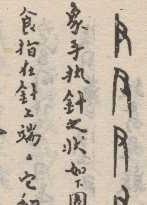 象手执針之狀如下圖
食指在針上端。它和